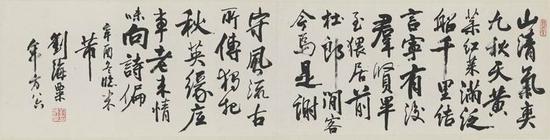 山清氣爽
九秋天黃
菊紅茱滿泛
船千里結
言寧有後
羣賢畢
至猥居前
杜郎閒客
今焉是謝
守風流古
所傳獨把
秋英緣底
事老來情
味向詩偏
辛酉冬臨米
芾
劉海粟
年方